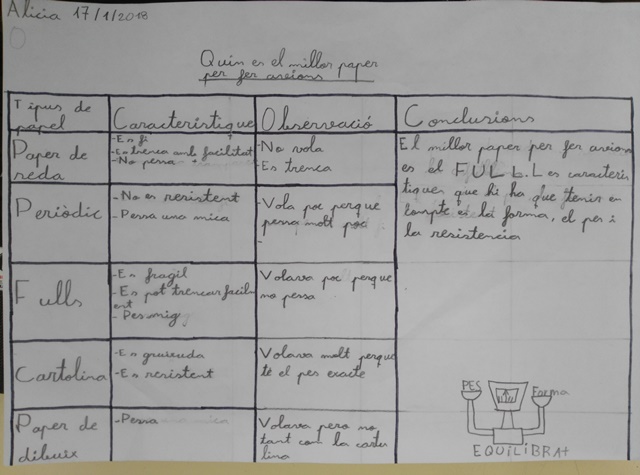 Alicia 17/1/2018
Quin es el millor paper
per fer avions
Tipus de
papel
Característique
Observació
Conclusions
Paper de
seda
-Es fi
-Es trenca amb facilitat
-No pessa
-No vola
-Es trenca
El millor paper per fer avions
es el FULL b. L es caracterís
tiques que hi ha que tenir en
compte es la forma, el pes i
la resistencia
Periòdic
-No es resistent
-Pessa una mica
-Vola poc perque
pessa molt poc
Fulls
-Es fragil
-Es pot trencar facilm
ent
-Pes mig
Volava poc perque
no pessa
Cartolina
-Es gruixuda
-Es resistent
Volava molt perque
té el pes exacte
Paper de
dibuix
-Pessa
Volava pero no
tant com la cartu
lina
PES
Forma
EQUILIBRAt